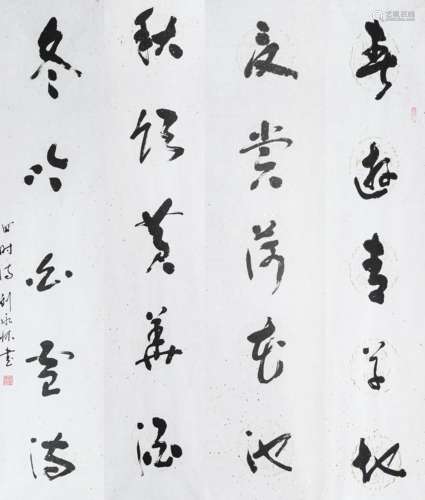 春遊青草地
夏赏荷花池
秋饮黄華酒
冬吟白雪诗
四时诗 刘永 书